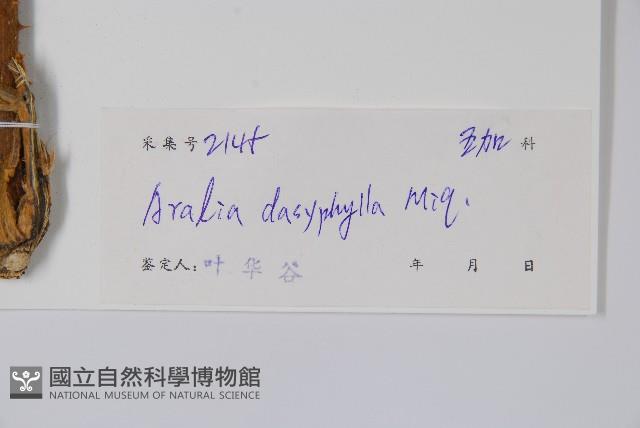 采集号 2145 五加 科
Aralia dasyphylla Miq.
鉴定人: 叶华谷 年 月 日
國立自然科學博物館
NATIONAL MUSEUM OF NATURAL SCIENCE